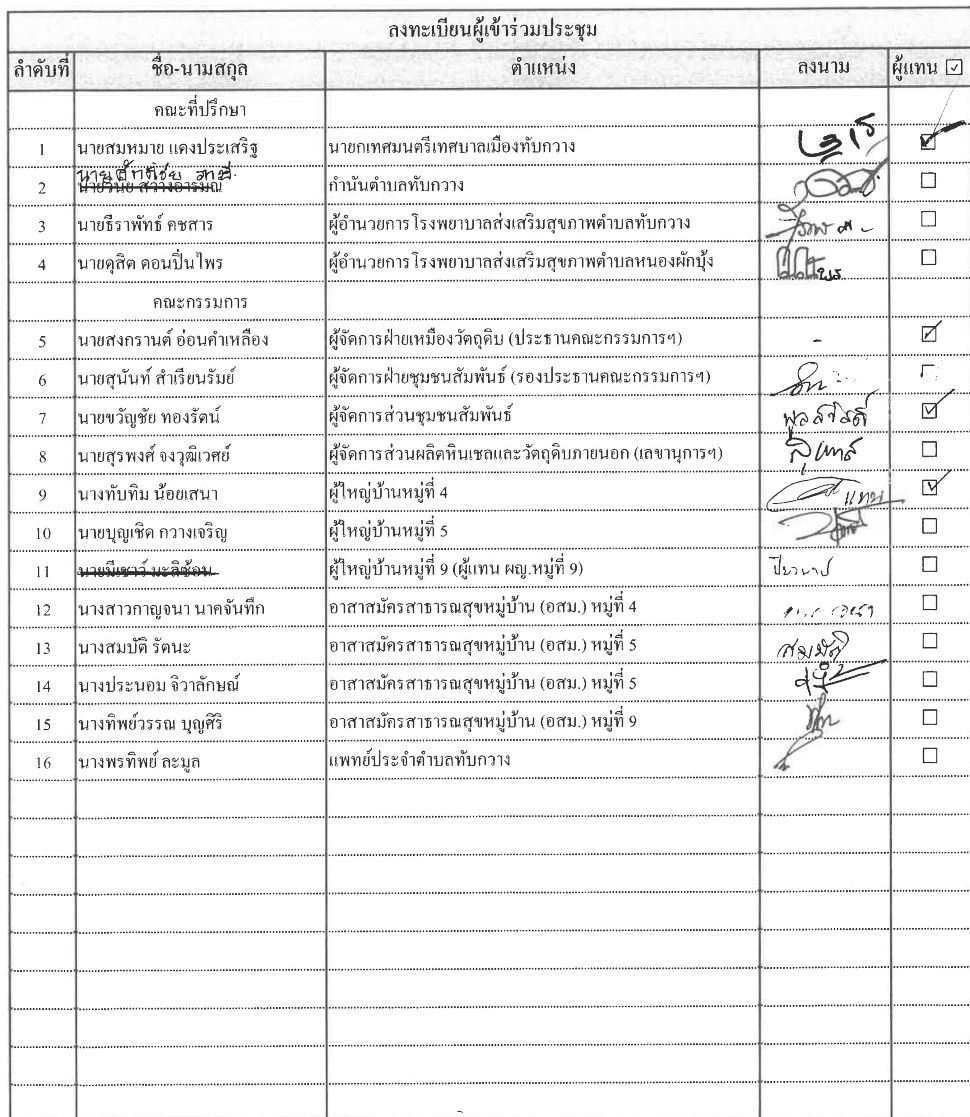 ลงทะเบียนผู้เข้าร่วมประชุม
ลำดับที่ ชื่อ-นามสกุล ตำแหน่ง ลงนาม ผู้แทน ☑
คณะที่ปรึกษา
1 นายสมหมาย แดงประเสริฐ นายกเทศมนตรีเทศบาลเมืองทับกวาง ☑
นาย
2 นายวินัย สว่างอารมณ์ กำนันตำบลทับกวาง ☐
3 นายธีราพัทธ์ คชสาร ผู้อำนวยการโรงพยาบาลส่งเสริมสุขภาพตำบลทับกวาง ☐
4 นายดุสิต ดอนปิ่นไพร ผู้อำนวยการโรงพยาบาลส่งเสริมสุขภาพตำบลหนองผักบุ้ง ☐
คณะกรรมการ
5 นายสงกรานต์ อ่อนคำเหลือง ผู้จัดการฝ่ายเหมืองวัตถุดิบ (ประธานคณะกรรมการฯ) - ☑
6 นายสุนันท์ สำเรียนรัมย์ ผู้จัดการฝ่ายชุมชนสัมพันธ์ (รองประธานคณะกรรมการฯ) ☐
7 นายขวัญชัย ทองรัตน์ ผู้จัดการส่วนชุมชนสัมพันธ์ ☑
8 นายสุรพงศ์ จงวุฒิเวศย์ ผู้จัดการส่วนผลิตหินเชลและวัตถุดิบภายนอก (เลขานุการฯ) ☐
9 นางทับทิม น้อยเสนา ผู้ใหญ่บ้านหมู่ที่ 4 แทน ☑
10 นายบุญเชิด กวางเจริญ ผู้ใหญ่บ้านหมู่ที่ 5 ☐
11 นายมีเชาว์ มะลิซ้อน ผู้ใหญ่บ้านหมู่ที่ 9 (ผู้แทน ผญ.หมู่ที่ 9) ☐
12 นางสาวกาญจนา นาคจันทึก อาสาสมัครสาธารณสุขหมู่บ้าน (อสม.) หมู่ที่ 4 ☐
13 นางสมบัติ รัตนะ อาสาสมัครสาธารณสุขหมู่บ้าน (อสม.) หมู่ที่ 5 สมบัติ ☐
14 นางประนอม จิวาลักษณ์ อาสาสมัครสาธารณสุขหมู่บ้าน (อสม.) หมู่ที่ 5 ☐
15 นางทิพย์วรรณ บุญศิริ อาสาสมัครสาธารณสุขหมู่บ้าน (อสม.) หมู่ที่ 9 ☐
16 นางพรทิพย์ ละมูล แพทย์ประจำตำบลทับกวาง ☐